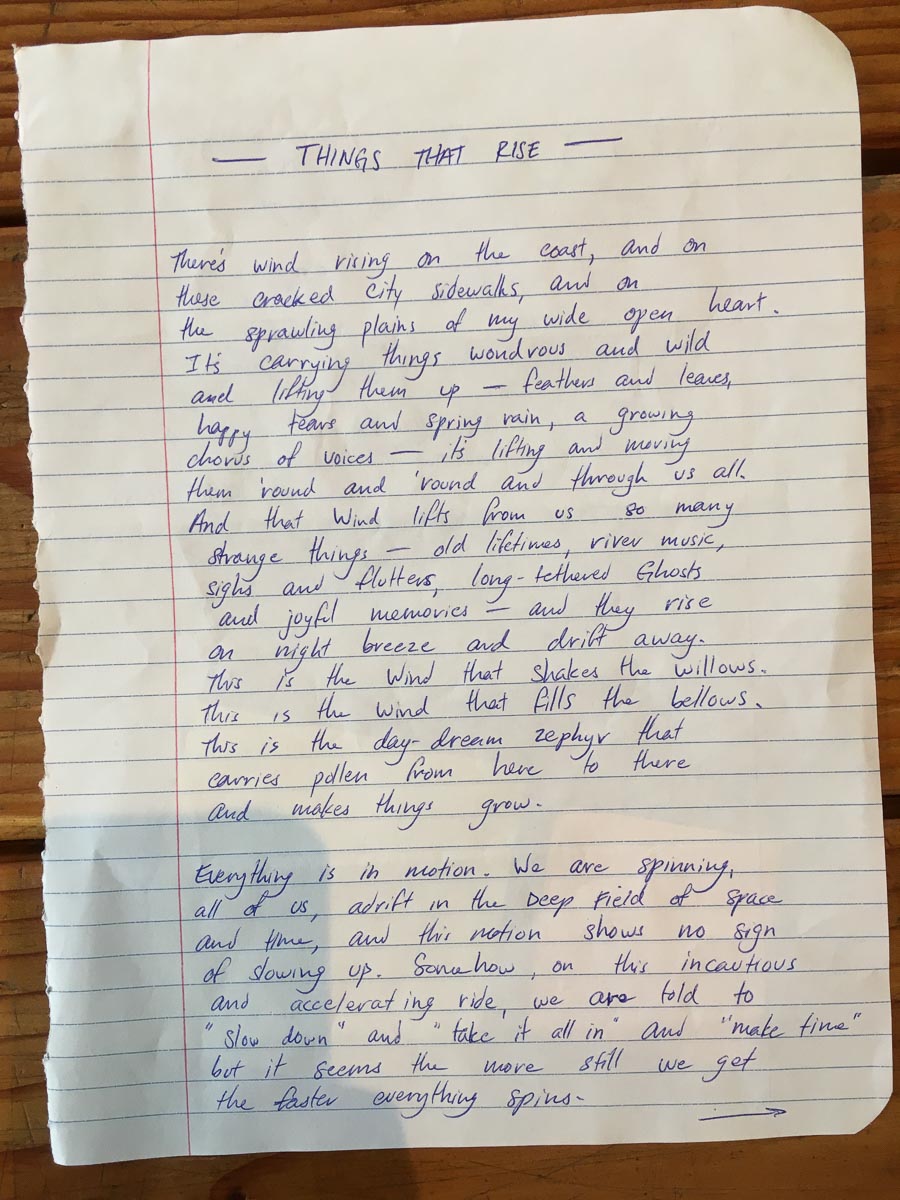 — THINGS THAT RISE —
There's wind rising on the coast, and on
these cracked city sidewalks, and on
the sprawling plains of my wide open heart.
It's carrying things wondrous and wild
and lifting them up — feathers and leaves,
happy tears and spring rain, a growing
chorus of voices — it's lifting and moving
them 'round and 'round and through us all.
And that Wind lifts from us so many
strange things — old lifetimes, river music,
sighs and flutters, long-tethered Ghosts
and joyful memories — and they rise
on night breeze and drift away.
This is the Wind that shakes the willows.
This is the wind that fills the bellows.
This is the day-dream zephyr that
carries pollen from here to there
and makes things grow.
Everything is in motion. We are spinning,
all of us, adrift in the Deep Field of space
and time, and this motion shows no sign
of slowing up. Somehow, on this incautious
and accelerating ride, we are told to
"slow down" and "take it all in" and "make time"
but it seems the more still we get
the faster everything spins.
→